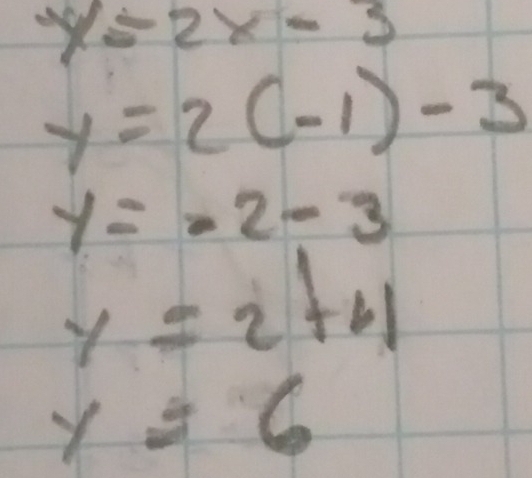 y = 2x - 3
y = 2(-1) - 3
y = -2 - 3
y = 2 + 4
y = 6